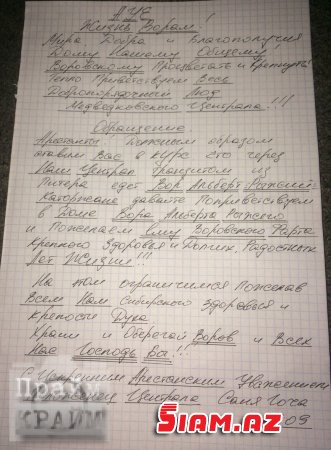 АУЕ
Жизнь Ворам!
Мира Добра и Благополучия
Дому Нашему Общему!
Воровскому Процветать и Крепнуть!
Тепло Приветствуем Весь
Добропорядочный Люд
Медведковского Централа!!!
Обращение
Арестанты Должным образом
ставим Вас в курс что через
Наш Централ транзитом из
Питера едет Вор Альберт Рыжий
Каторжане давайте Поприветствуем
в Доме Вора Альберта Рыжего
и Пожелаем ему Воровского Фарта
Крепкого Здоровья и Долгих Радостных
Лет Жизни!!!
На том ограничимся Пожелав
Всем Нам Сибирского Здоровья и
Крепости Духа
Храни и Оберегай Воров и Всех
Нас Господь Бог!!
С Искренним Арестантским Уважением
Централа Саня Гоча
09
Прайм
КРАЙМ
SIAM.AZ